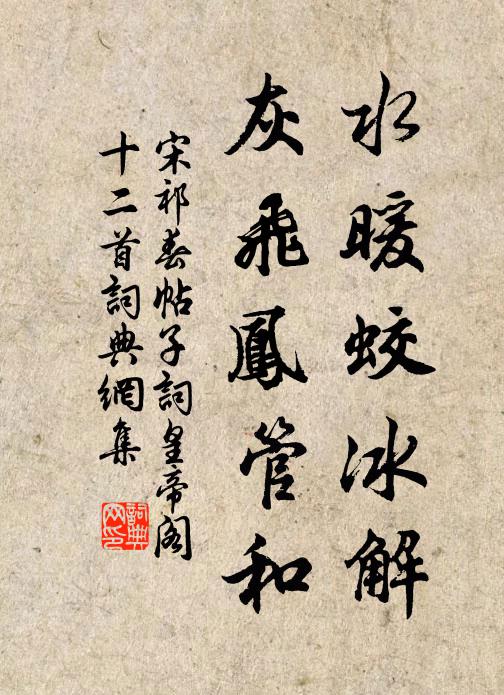 水暖蛟冰解
灰飛鳳管和
宋祁春帖子詞皇帝閣
十二首詞典網集
詞典
网印